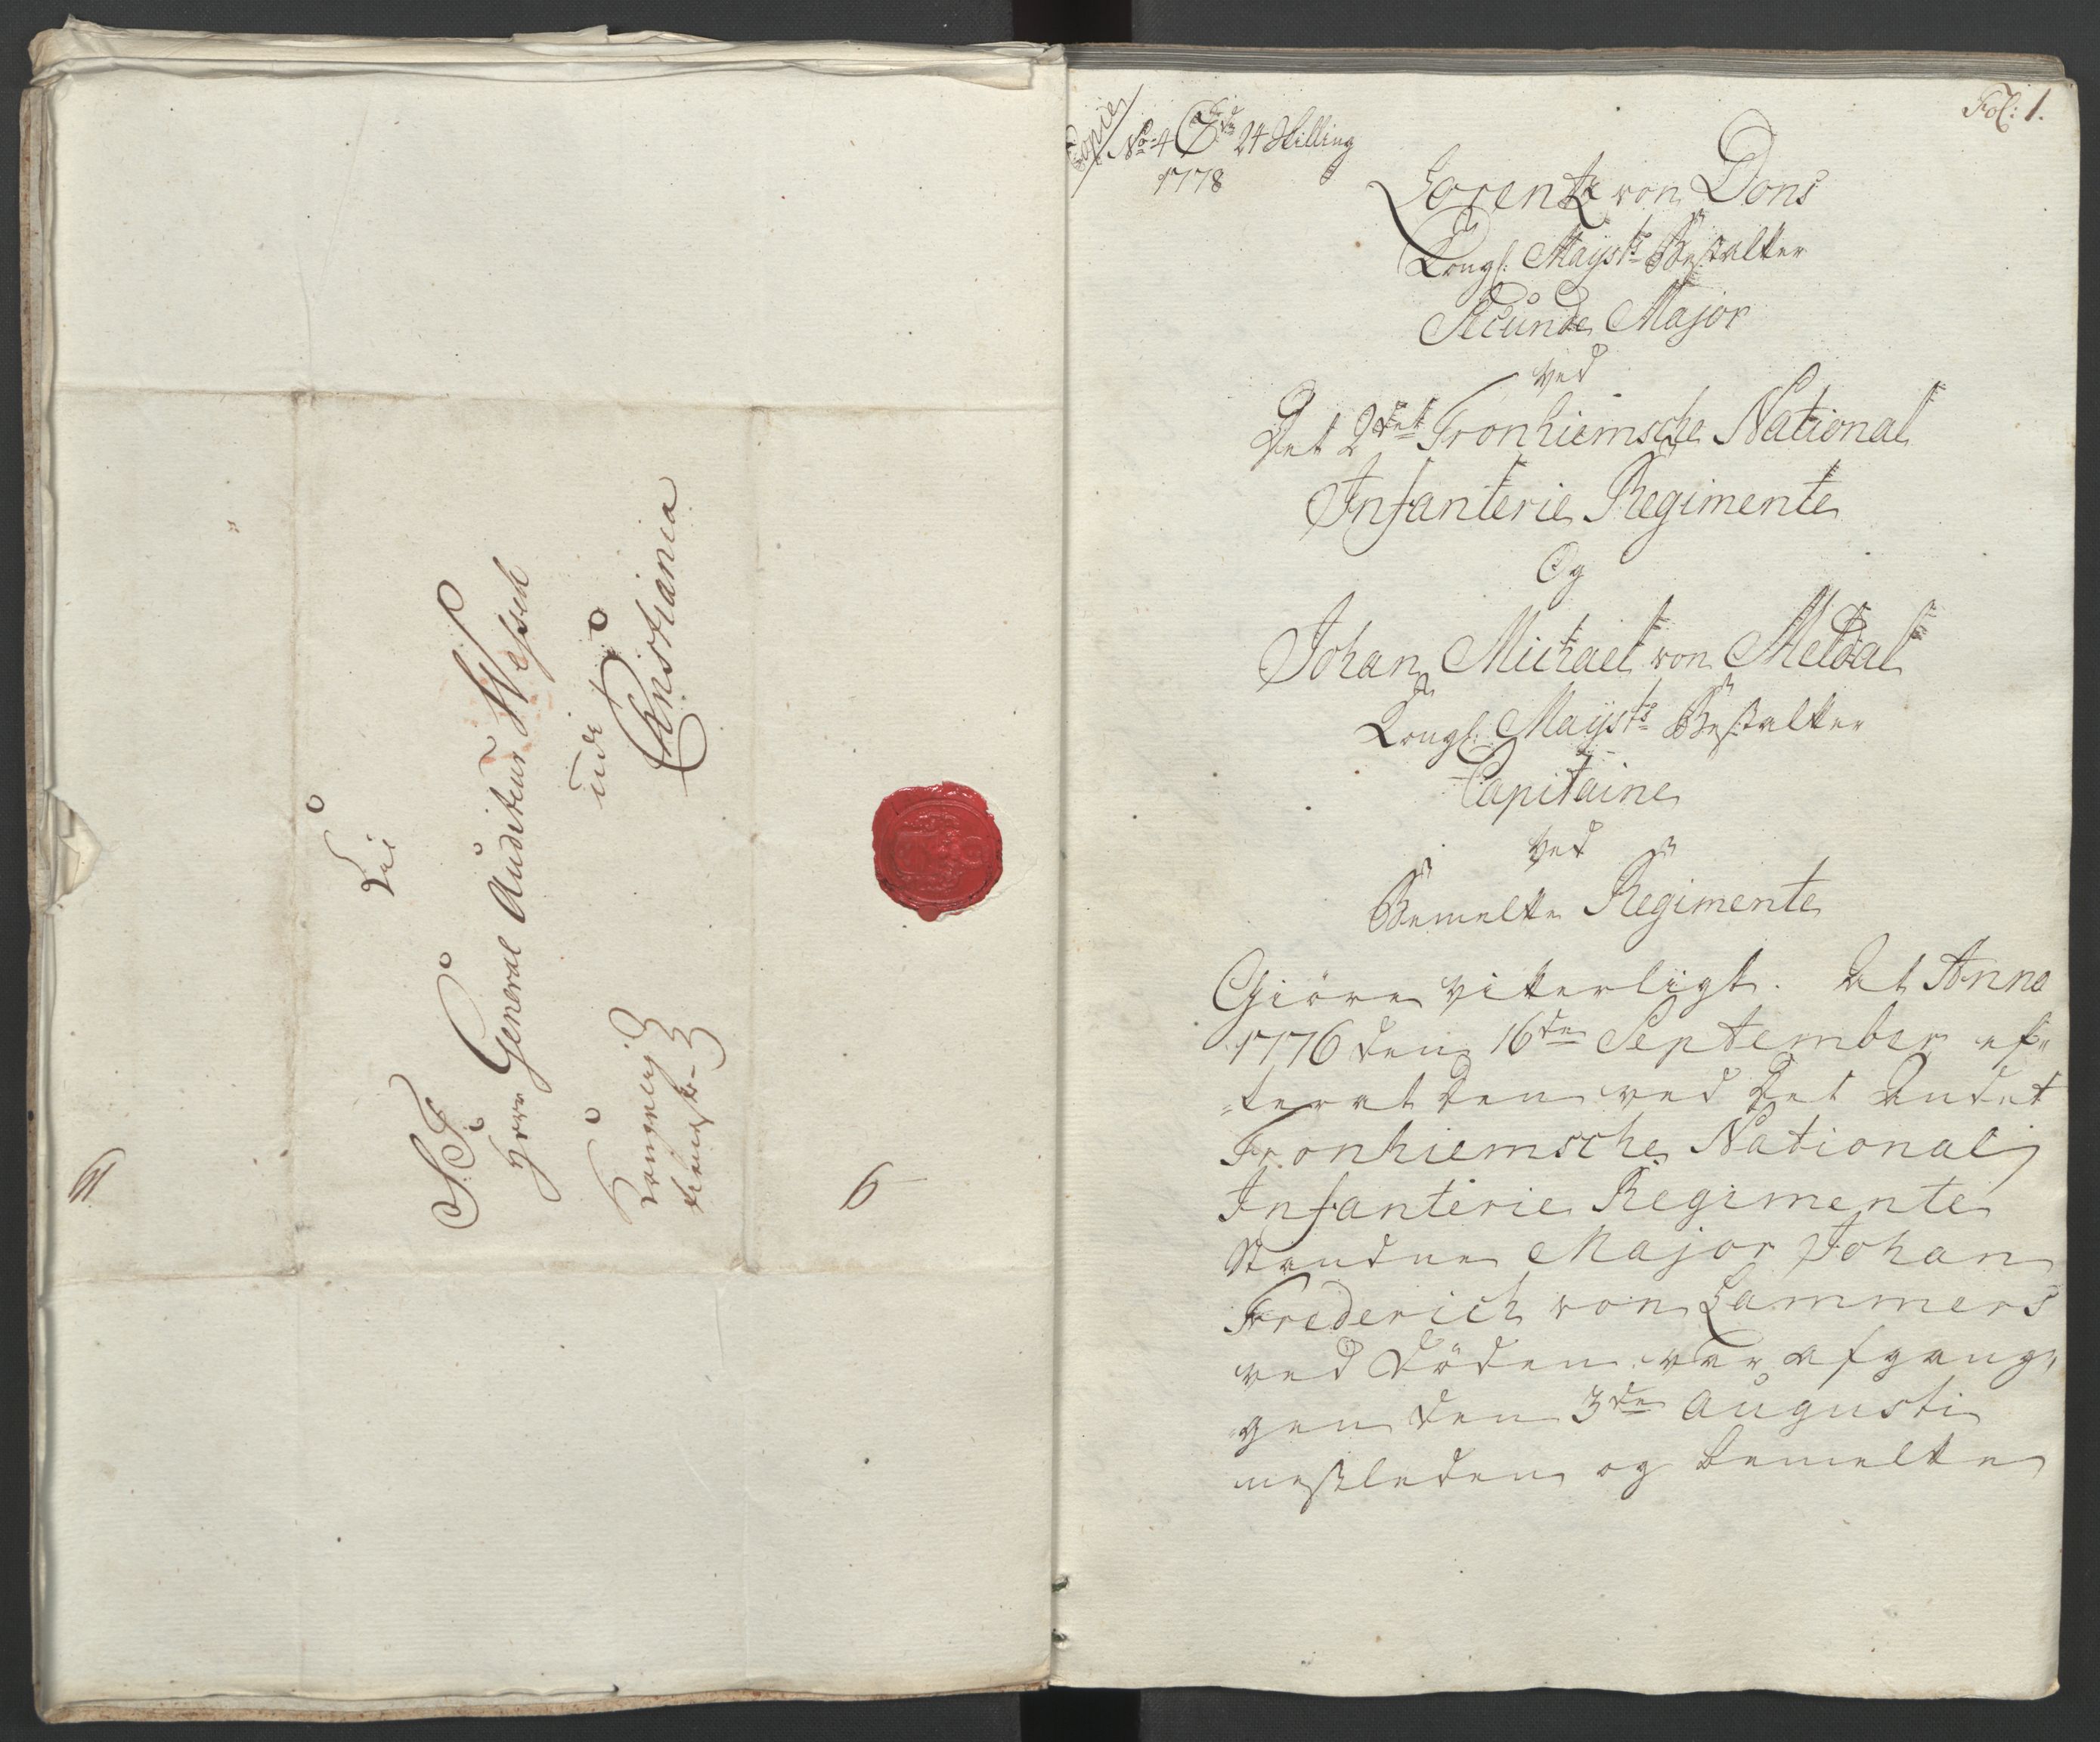 Til
S. T.
Herr General Auditeur Wessel
udi
Christiania
Kongelig
tieneste
6
Fol: 1.
Copie
No 4 24 Skilling
1778
Lorentz von Dons
Kongl: Mayst: Bestalter
Secunde Major
ved
Det 2det Tronhiemsche National
Infanterie Regimente
Og
Johan Michael von Meldal
Kongl: Mayst: Bestalter
Capitaine
ved
Bemelte Regimente
Giöre vitterligt. At Anno
1776 den 16de September ef„
„terat den ved Det Andet
Tronhiemsche National
Infanterie Regimente
staaende Major Johan
Frederich von Lammers
ved Döden var afgang„
„gen den 3de Augusti
nestleden og bemelte